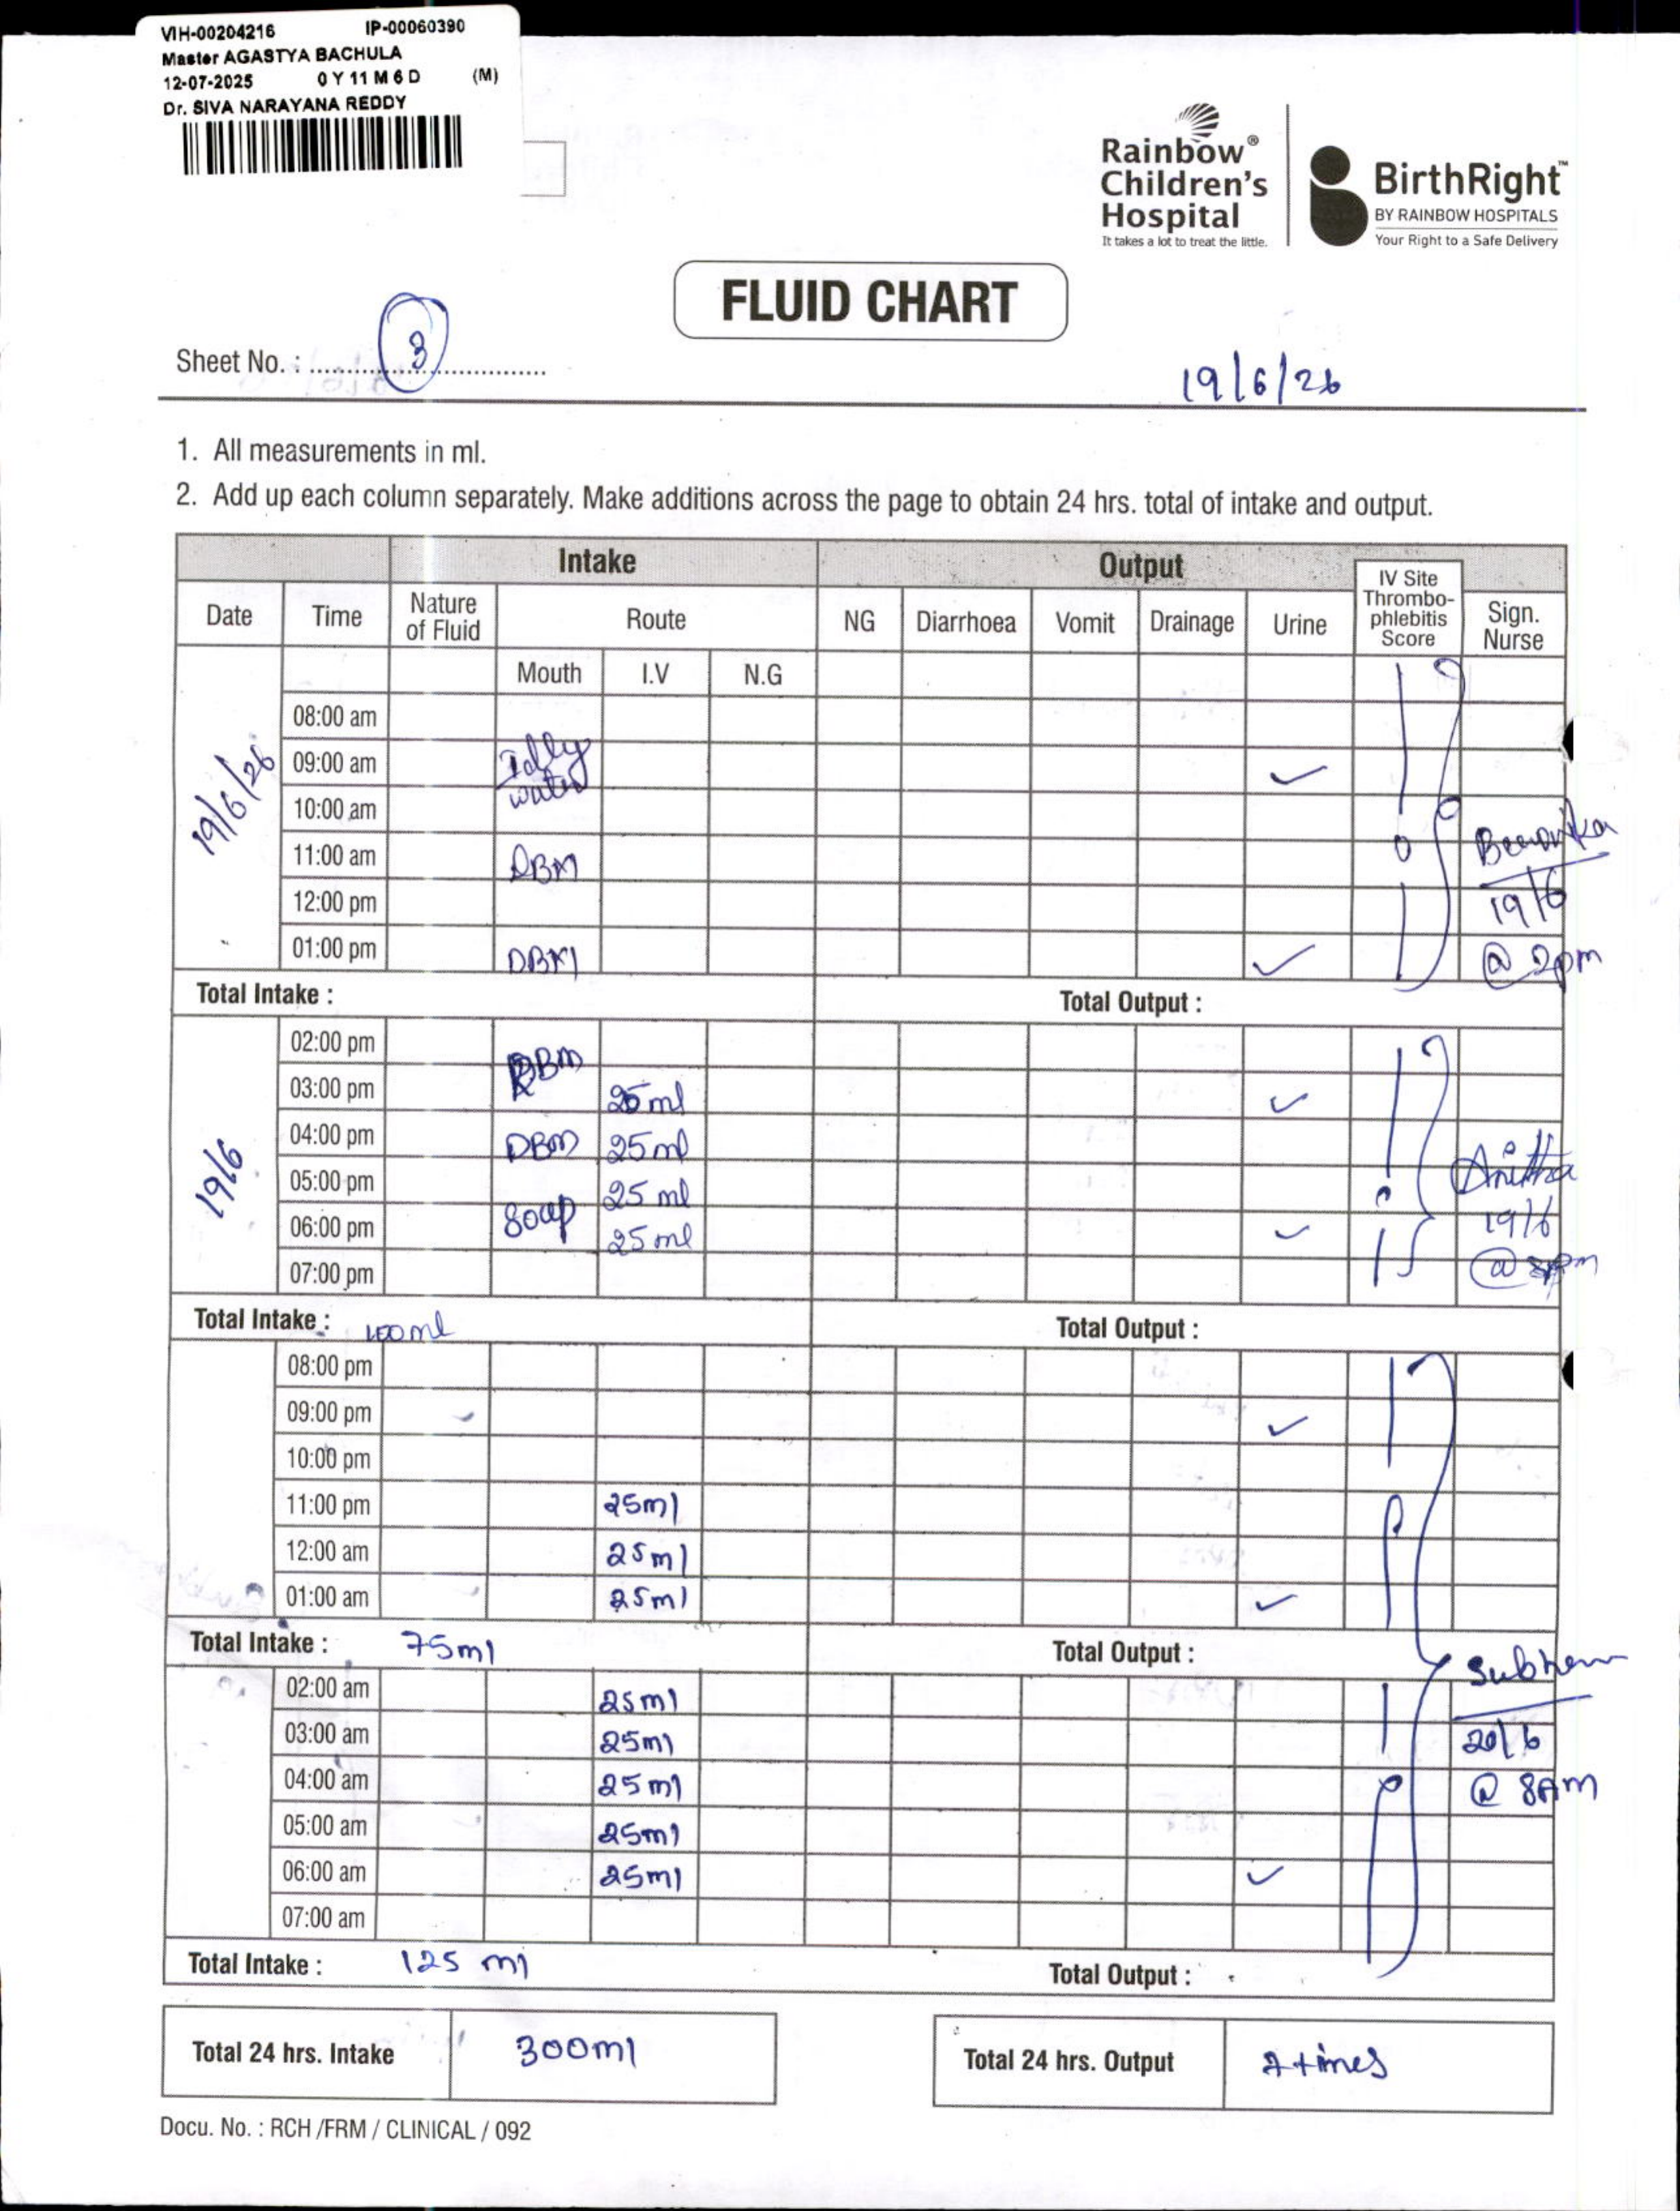 VIH-00204216 IP-00060390
Master AGASTYA BACHULA
12-07-2025 0 Y 11 M 6 D (M)
Dr. SIVA NARAYANA REDDY
Rainbow®
Children's
Hospital
It takes a lot to treat the little.
BirthRight™
BY RAINBOW HOSPITALS
Your Right to a Safe Delivery
FLUID CHART
Sheet No. : 3
19/6/26
1. All measurements in ml.
2. Add up each column separately. Make additions across the page to obtain 24 hrs. total of intake and output.
Intake Output
Date Time Nature of Fluid Route NG Diarrhoea Vomit Drainage Urine IV Site Thrombo-phlebitis Score Sign. Nurse
Mouth I.V N.G
19/6/26
08:00 am
09:00 am Idly ✓
10:00 am water
11:00 am DBM 0
12:00 pm
01:00 pm DBM ✓
19/6
@ 2pm
Total Intake : Total Output :
19/6
02:00 pm DBM
03:00 pm 25 ml ✓
04:00 pm DBM 25 ml
05:00 pm 25 ml
06:00 pm Soup 25 ml ✓
07:00 pm
Anitha
19/6
@ 8pm
Total Intake : 100ml Total Output :
08:00 pm
09:00 pm ✓
10:00 pm
11:00 pm 25ml
12:00 am 25ml
01:00 am 25ml ✓
Total Intake : 75ml Total Output :
02:00 am 25ml
03:00 am 25ml
04:00 am 25ml
05:00 am 25ml
06:00 am 25ml ✓
07:00 am
20/6
@ 8Am
Total Intake : 125 ml Total Output :
Total 24 hrs. Intake 300ml
Total 24 hrs. Output 7 times
Docu. No. : RCH /FRM / CLINICAL / 092